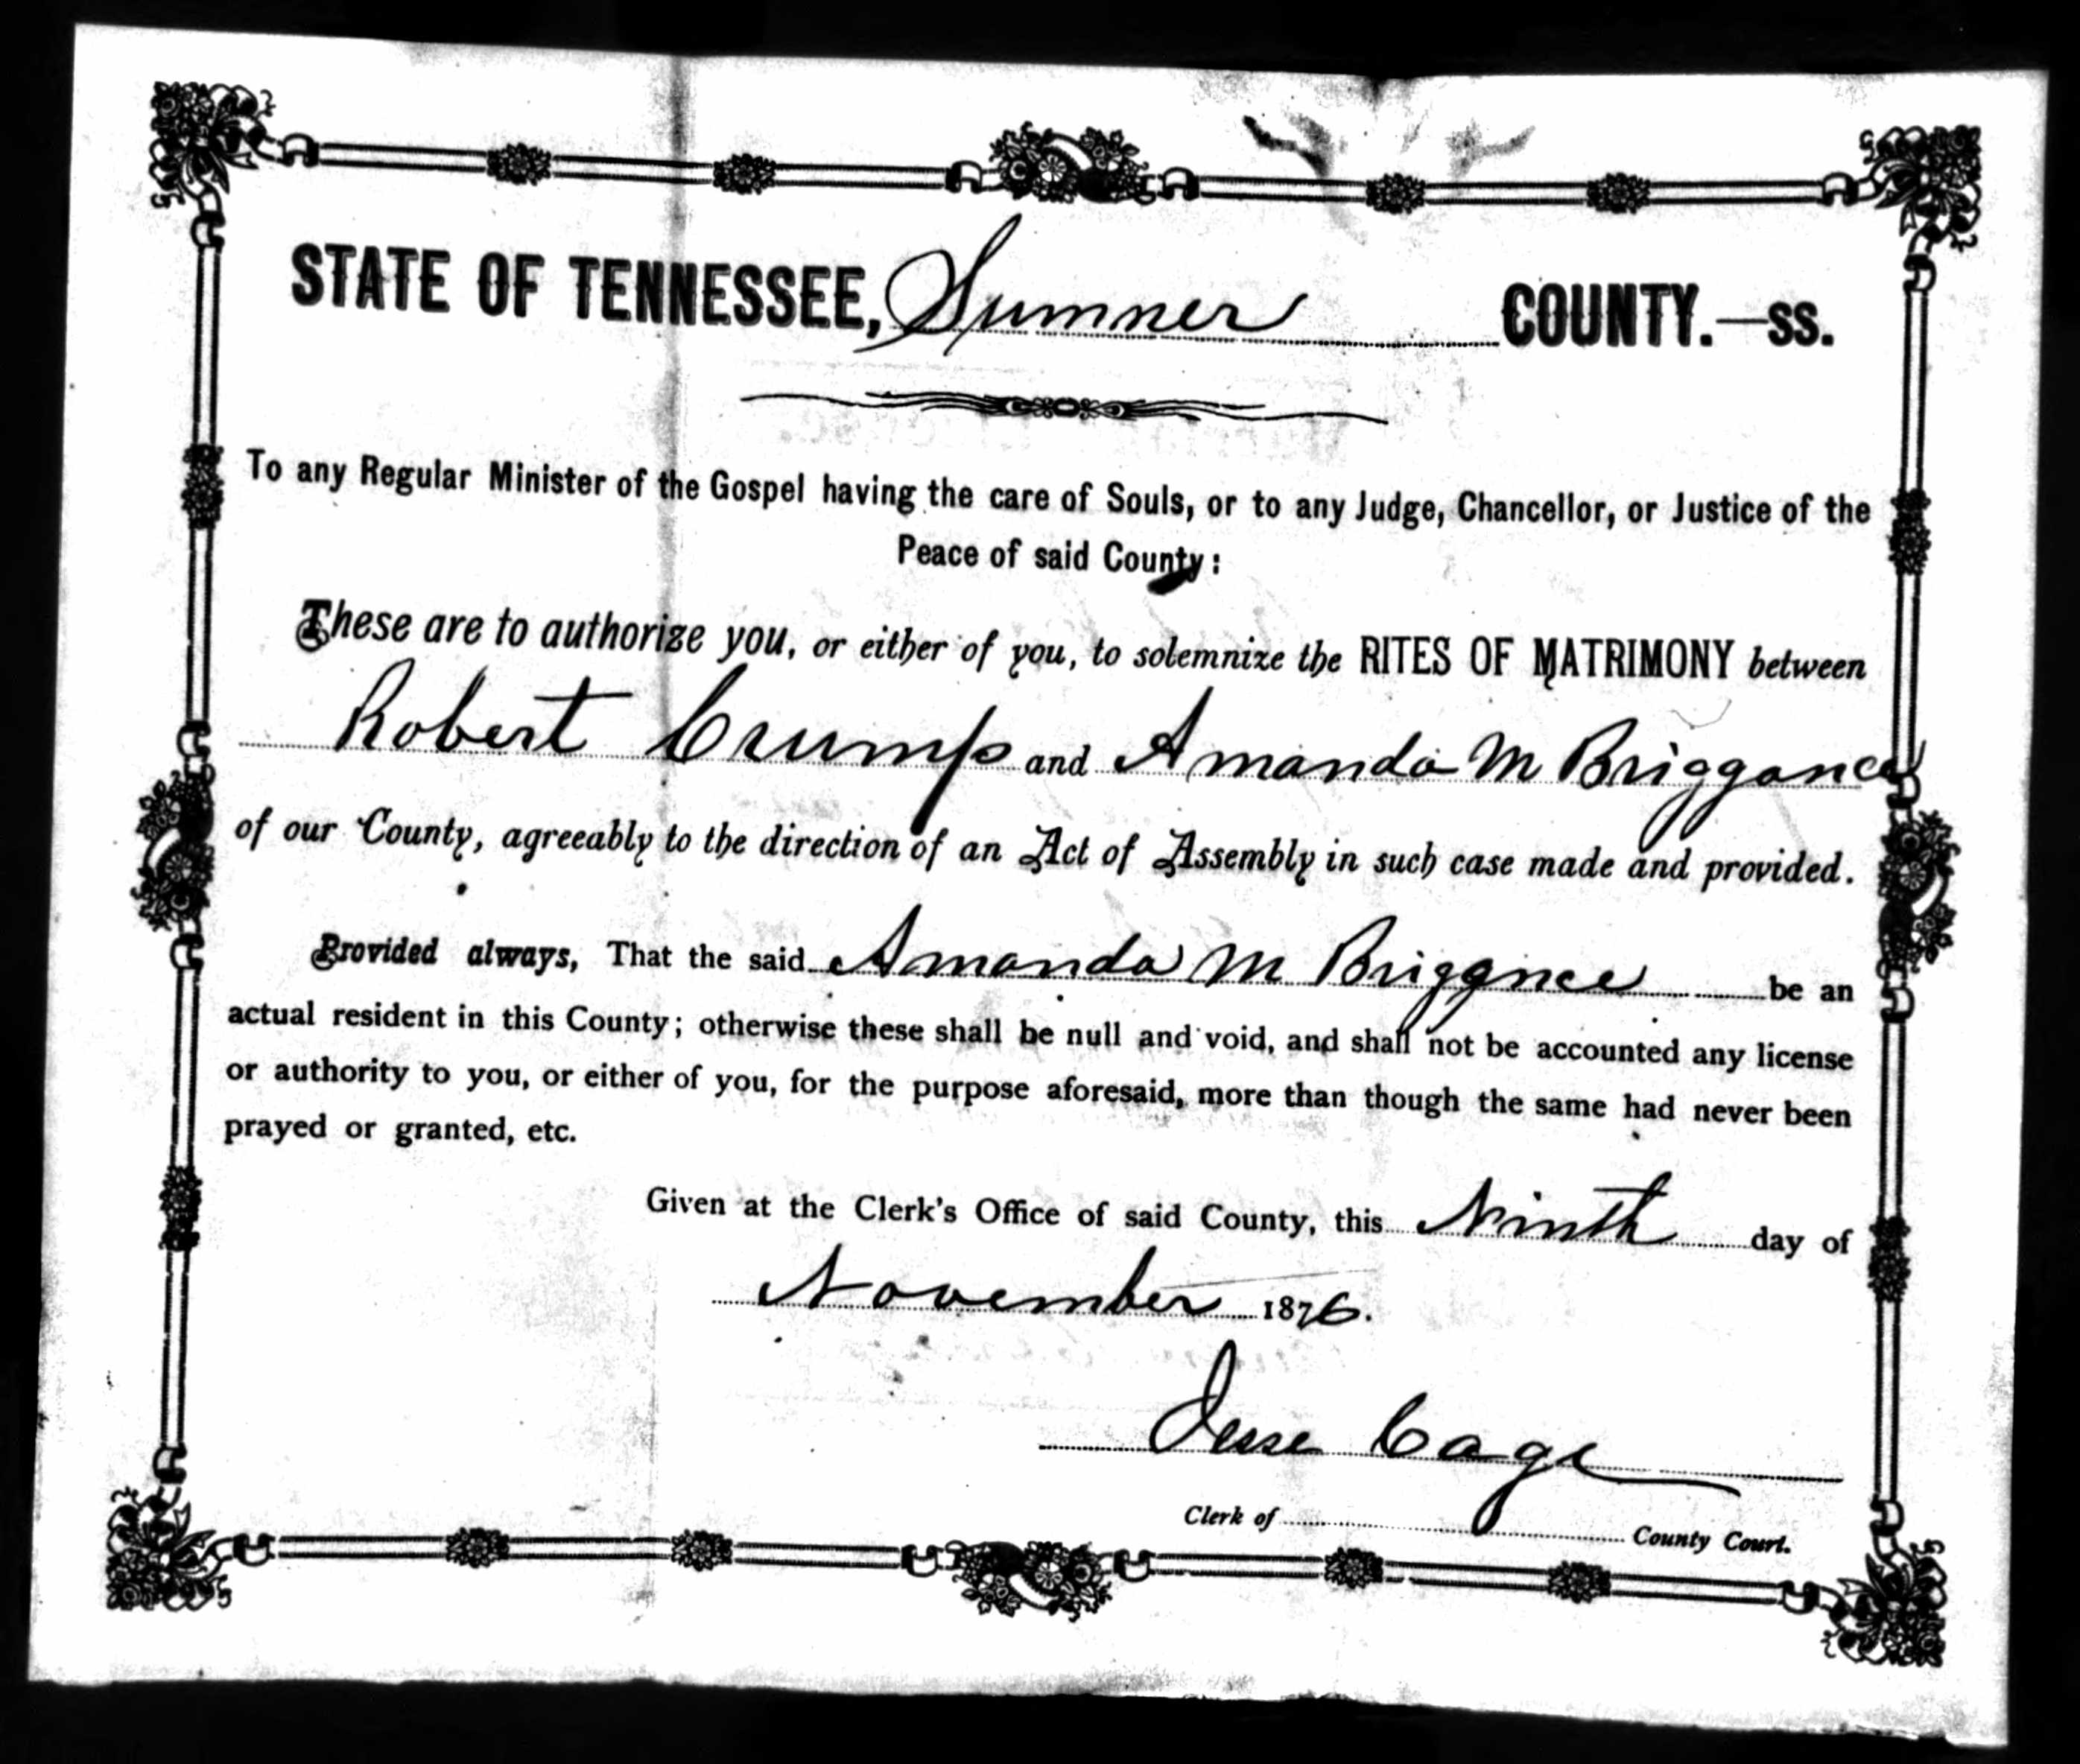 STATE OF TENNESSEE, Sumner COUNTY.—ss.
To any Regular Minister of the Gospel having the care of Souls, or to any Judge, Chancellor, or Justice of the
Peace of said County:
These are to authorize you, or either of you, to solemnize the RITES OF MATRIMONY between
Robert Crump and Amanda M Briggance
of our County, agreeably to the direction of an Act of Assembly in such case made and provided.
Provided always, That the said Amanda M Briggnce be an
actual resident in this County; otherwise these shall be null and void, and shall not be accounted any license
or authority to you, or either of you, for the purpose aforesaid, more than though the same had never been
prayed or granted, etc.
Given at the Clerk's Office of said County, this Ninth day of
November 1876.
Jesse Cage
Clerk of County Court.